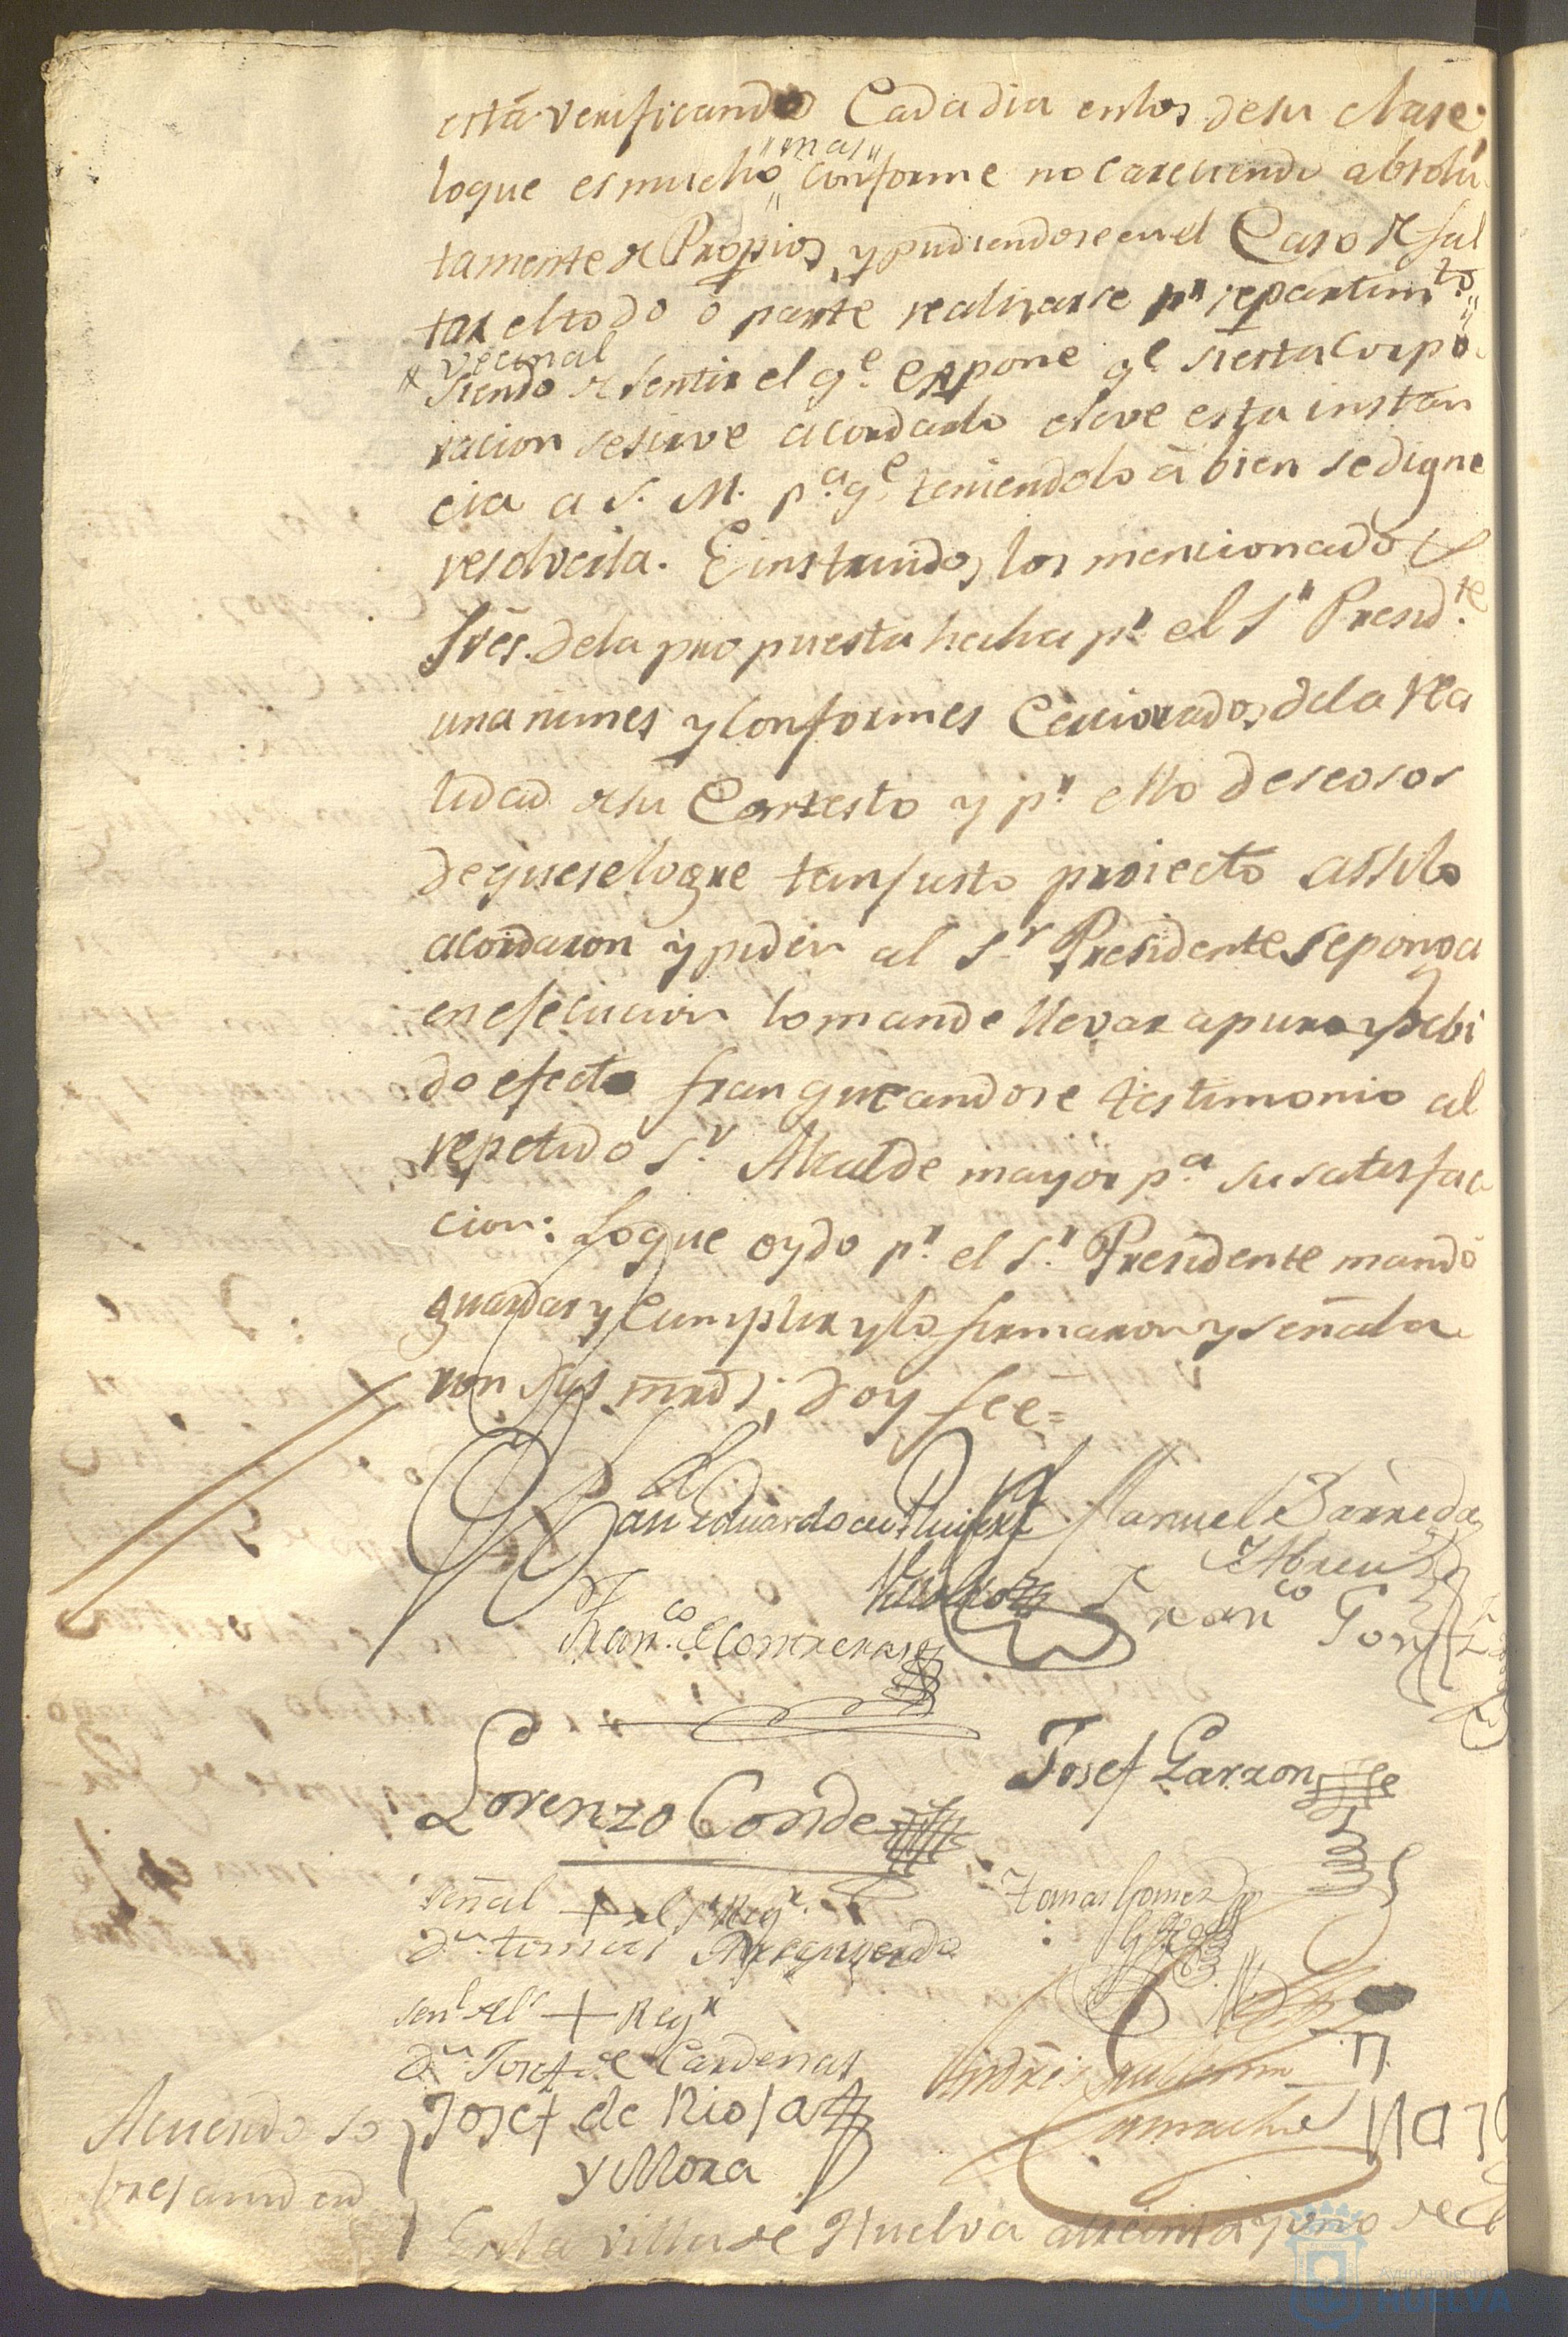 está verificando Cada dia enlos desu clase
"mas"
loque es mucho conforme no careciendo absolu
tamente de Propios, y pudiendose en el Caso de fal
tar el todo ó parte realizarse pr. repartimto.
vecinal
siendo de sentir el qe. expone qe. si esta Corpo
racion se sirve acordarlo eleve esta instan
cia a S. M. pa. qe. teniendolo á bien se digne
resolverla. E instruidos los mencionados
Sres. dela propuesta hecha pr. el Sr. Presidte.
unanimes y Conformes Cerciorados dela rea
lidad de su Contesto y pr. ello deseosos
deque se logre tan justo proiecto assi lo
acordaron y piden al Sr. Presidente se ponga
en esecucion lo mande llevar a puro y debi
do efecto franqueandose testimonio al
repetido Sr. Alcalde mayor pa. su satisfac
cion: Loque oydo pr. el Sr. Presidente mandó
guardar y Cumplir y lo firmaron y señala
ron sus mrds; doy fee=
Eduardo Manuel Barreda
y Abreu
Franco. de Contreras Franco
Josef Garzon
Lorenzo Conde
señal + del Sr. Regr. Tomas Gomez
Dn. tomas Arreguerdo
senl. del Sr + Regr
Dn. Josef de Cardenas
Andres Guillermo
Camacho
Josef de Rioja
y Mora
Acuerdo so
bre
En la villa de Huelva a treinta y uno de
Ayuntamiento de
HUELVA